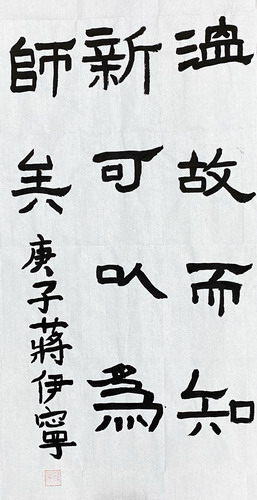 溫故而知
新可以為
師矣
庚子蔣伊寧